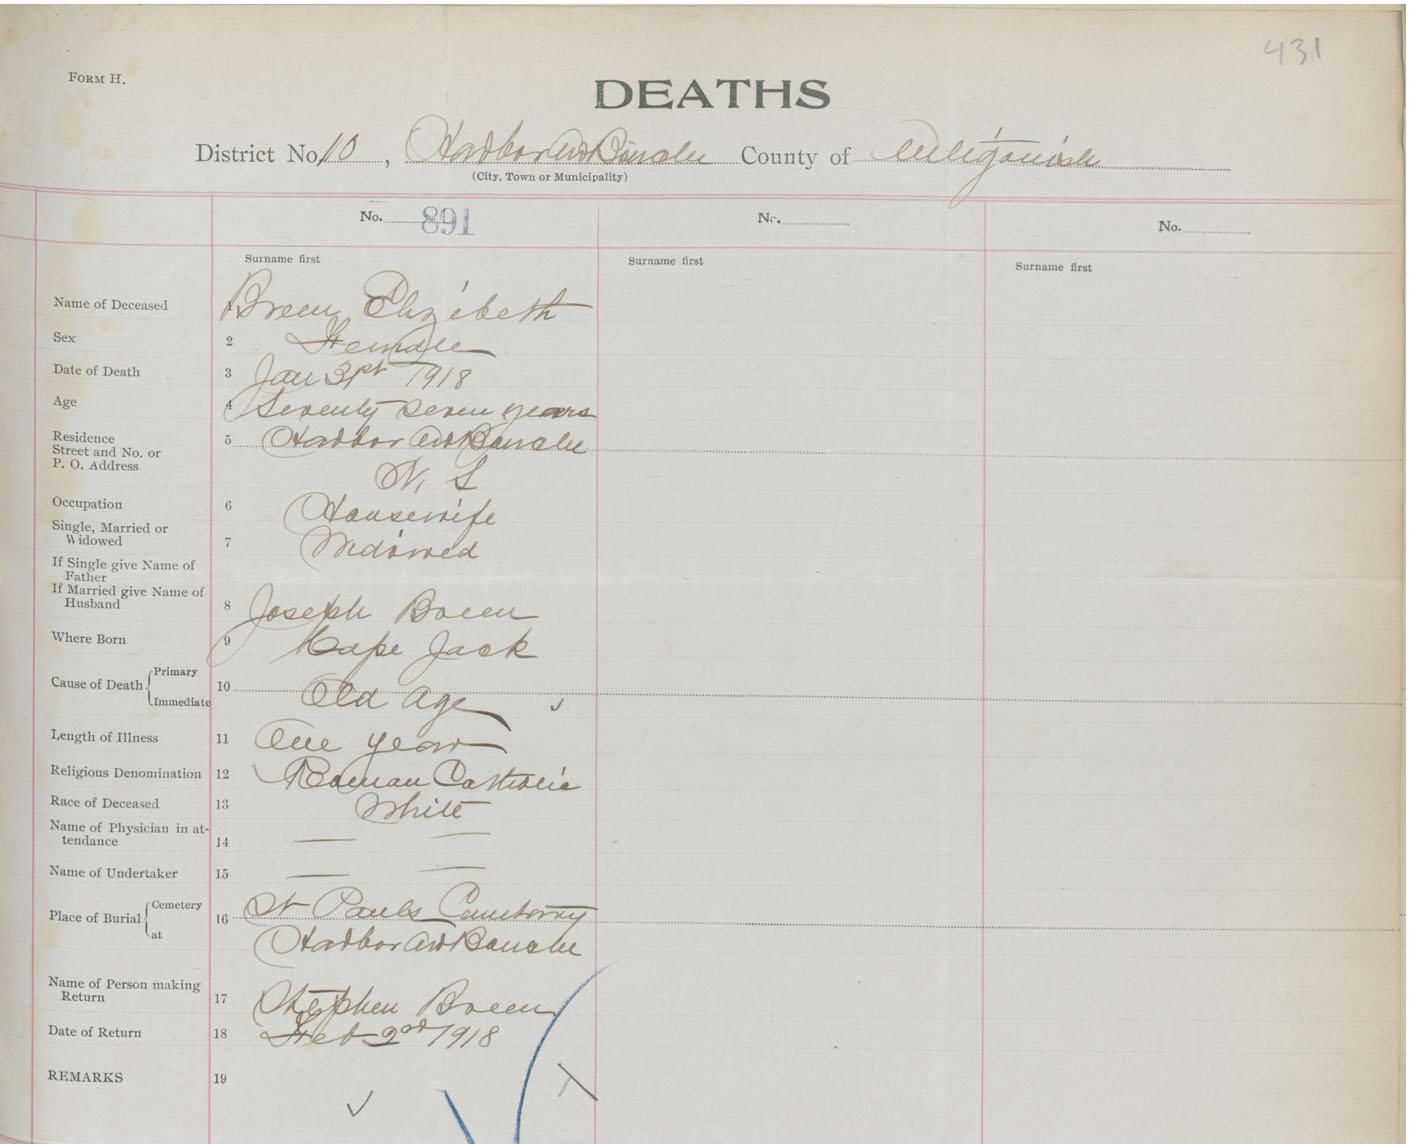 431
FORM H.
DEATHS
District No. 10, Harbor au Bouche County of Antigonish
(City, Town or Municipality)
No. 891 No. No.
Surname first Surname first Surname first
Name of Deceased 1 Breen Elizibeth
Sex 2 Female
Date of Death 3 Jan 31st 1918
Age 4 Seventy seven years
Residence 5 Harbor au Bouche
Street and No. or
P. O. Address N. S
Occupation 6 Housewife
Single, Married or
Widowed 7 Widowed
If Single give Name of
Father
If Married give Name of
Husband 8 Joseph Breen
Where Born 9 Cape Jack
Cause of Death { Primary
10 Old Age
Immediate
Length of Illness 11 One year
Religious Denomination 12 Roman Catholic
Race of Deceased 13 White
Name of Physician in at-
tendance 14 — —
Name of Undertaker 15 — —
Place of Burial { Cemetery 16 St Pauls Cemetery
at Harbor au Bouche
Name of Person making
Return 17 Stephen Breen
Date of Return 18 Feb 2nd 1918
REMARKS 19